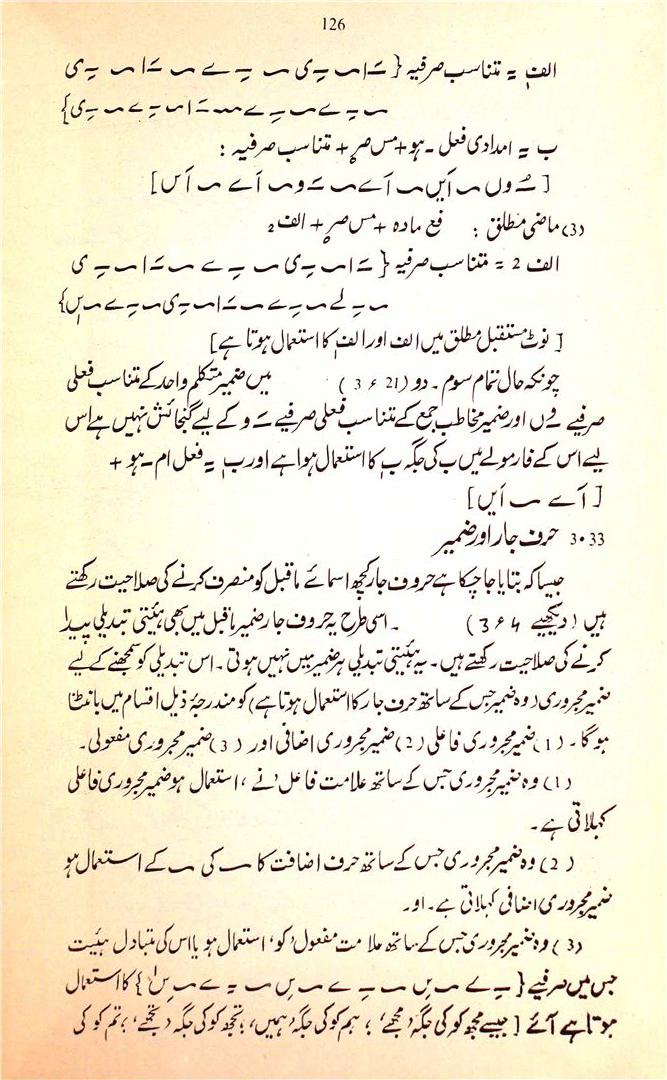 126
الف = متناسب صرفیہ { ـَ ا ؍ ـِ ی ؍ ـِ ے ؍ ـَ ا ؍ ـِ ی
؍ ـِ ے ؍ ـِ ے ؍ ـَ ا ؍ ـِ ے ؍ ـِ ی}
ب = امدادی فعل ۔ ہو + مس صہ + متناسب صرفیہ :
[ ـُ وں ؍ اَیں ؍ اَے ؍ ـَ و ؍ اَے ؍ اَس ]
(3) ماضی مطلق : فع مادہ + مس صہ + الف 2
الف 2 = متناسب صرفیہ { ـَ ا ؍ ـِ ی ؍ ـِ ے ؍ ـَ ا ؍ ـِ ی
[ نوٹ مستقبل مطلق میں الف اور الف کا استعمال ہوتا ہے]
چونکہ حال تمام سوم ۔ دو (21 ء 3 ) میں ضمیر متکلم واحد کے متناسب فعلی
صرفیے وں اور ضمیر مخاطب جمع کے متناسب فعلی صرفیے ـَ و کے لیے گنجائش نہیں ہے اس
لیے اس کے فارمولے میں ب کی جگہ ب کا استعمال ہوا ہے اور ب = فعل ام ۔ ہو +
[ اَے ؍ اَیں ]
3.33 حرف جار اور ضمیر
جیسا کہ بتایا جا چکا ہے حروف جار کچھ اسمائے ماقبل کو منصرف کرنے کی صلاحیت رکھتے
ہیں ( دیکھیے 4 ء 3 ) ۔ اسی طرح یہ حروف جار ضمیر ماقبل میں بھی ہیئتی تبدیلی پیدا
کرنے کی صلاحیت رکھتے ہیں ۔ یہ ہیئتی تبدیلی ہر ضمیر میں نہیں ہوتی ۔ اس تبدیلی کو سمجھنے کے لیے
ضمیر مجروری (وہ ضمیر جس کے ساتھ حرف جار کا استعمال ہوتا ہے) کو مندرجۂ ذیل اقسام میں بانٹنا
ہوگا ۔ (1) ضمیر مجروری فاعلی (2) ضمیر مجروری اضافی اور (3) ضمیر مجروری مفعولی ۔
(1) وہ ضمیر مجروری جس کے ساتھ علامت فاعل 'نے' ، استعمال ہو ضمیر مجروری فاعلی
کہلاتی ہے ۔
(2) وہ ضمیر مجروری جس کے ساتھ حرف اضافت کا ؍ کی ؍ کے استعمال ہو
ضمیر مجروری اضافی کہلاتی ہے ۔ او ۔
(3) وہ ضمیر مجروری جس کے ساتھ علامت مفعول 'کو' استعمال ہو یا اس کی متبادل ہیئت
جس میں صرفیے { ـِ ے ؍ ـِ ں ؍ ـِ ے ؍ ـِ ں ؍ ـِ ے ؍ ـِ ں } کا استعمال
ہوتا ہے آئے [ جیسے مجھ کو کی جگہ 'مجھے' ؛ ہم کو کی جگہ 'ہمیں' ؛ تجھ کو کی جگہ 'تجھے' ؛ تم کو کی